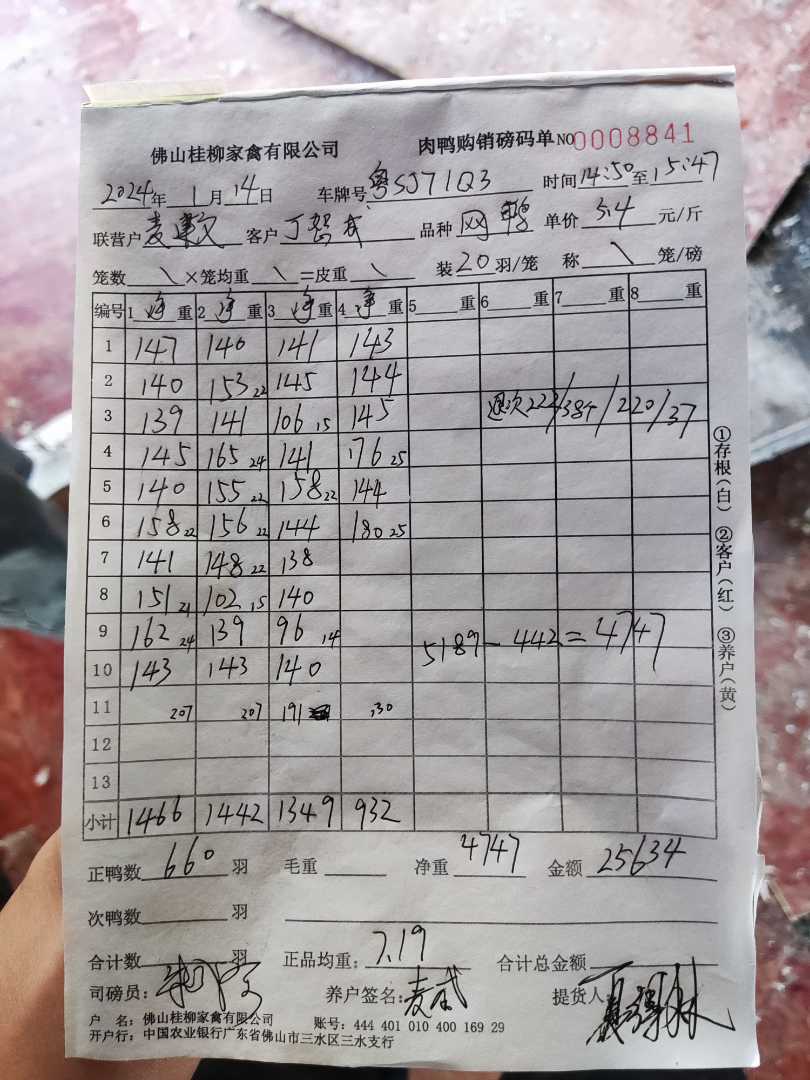 佛山桂柳家禽有限公司 肉鸭购销磅码单 NO 0008841
2024年 1月 14日 车牌号 粤SJ71Q3 时间 14:50 至 15:47
联营户 麦 客户 丁 品种 网鸭 单价 5.4 元/斤
笼数 \ ×笼均重 \ =皮重 \ 装 20 羽/笼 称 \ 笼/磅
编号 1 净 重 2 净 重 3 净 重 4 净 重 5 重 6 重 7 重 8 重
1 147 140 141 143
2 140 153 22 145 144
3 139 141 106 15 145 退次 223/38个/220/37
4 145 165 24 141 176 25
5 140 155 22 158 22 144
6 158 22 156 22 144 180 25
7 141 148 22 138
8 151 21 102 15 140
9 162 24 139 96 14 5189 - 442 = 4747
10 143 143 140
11 207 207 191 130
12
13
小计 1466 1442 1349 932
正鸭数 660 羽 毛重 净重 4747 金额 25634
次鸭数 羽
合计数 羽 正品均重: 7.19 合计总金额
司磅员: 养户签名: 麦 提货人
户 名: 佛山桂柳家禽有限公司 账号: 444 401 010 400 169 29
开户行: 中国农业银行广东省佛山市三水区三水支行
①存根(白) ②客户(红) ③养户(黄)